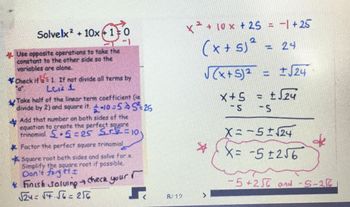 Solve x² + 10x + 1 = 0
-1 -1
Use opposite operations to take the
constant to the other side so the
variables are alone.
Check if a = 1. If not divide all terms by
"a".
Take half of the linear term coefficient (ie
divide by 2) and square it. 10 = 5 5² = 25
Add that number on both sides of the
equation to create the perfect square
trinomial. 5 · 5 = 25 5 + 5 = 10
Factor the perfect square trinomial
Square root both sides and solve for x.
Simplify the square root if possible.
Don't forget ±
Finish solving + check your √
√24 = √4 · √6 = 2√6
x² + 10x + 25 = -1 + 25
(x + 5)² = 24
√(x+5)² = ±√24
x+5 = ±√24
-5 -5
x = -5 ± √24
x = -5 ± 2√6
-5 + 2√6 and -5 - 2√6